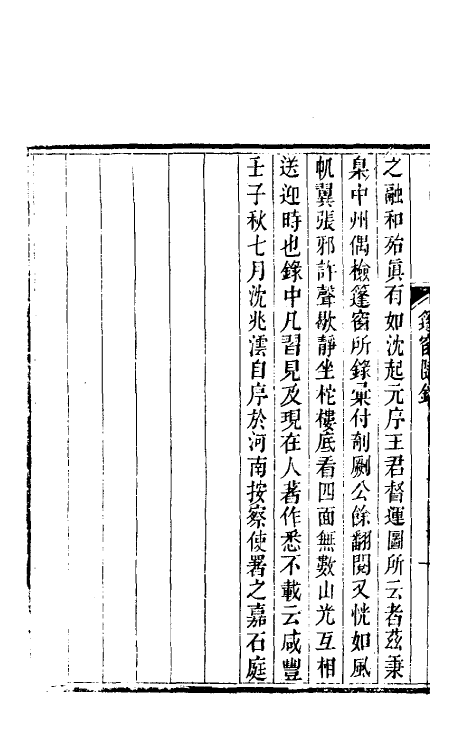 篷窗隨錄
之融和殆眞有如沈起元序王君督運圖所云者茲秉
臬中州偶檢篷窗所錄彙付剞劂公餘翻閱又恍如風
帆翼張邪許聲歇靜坐柁樓底看四面無數山光互相
送迎時也錄中凡習見及現在人著作悉不載云咸豐
壬子秋七月沈兆澐自序於河南按察使署之嘉石庭